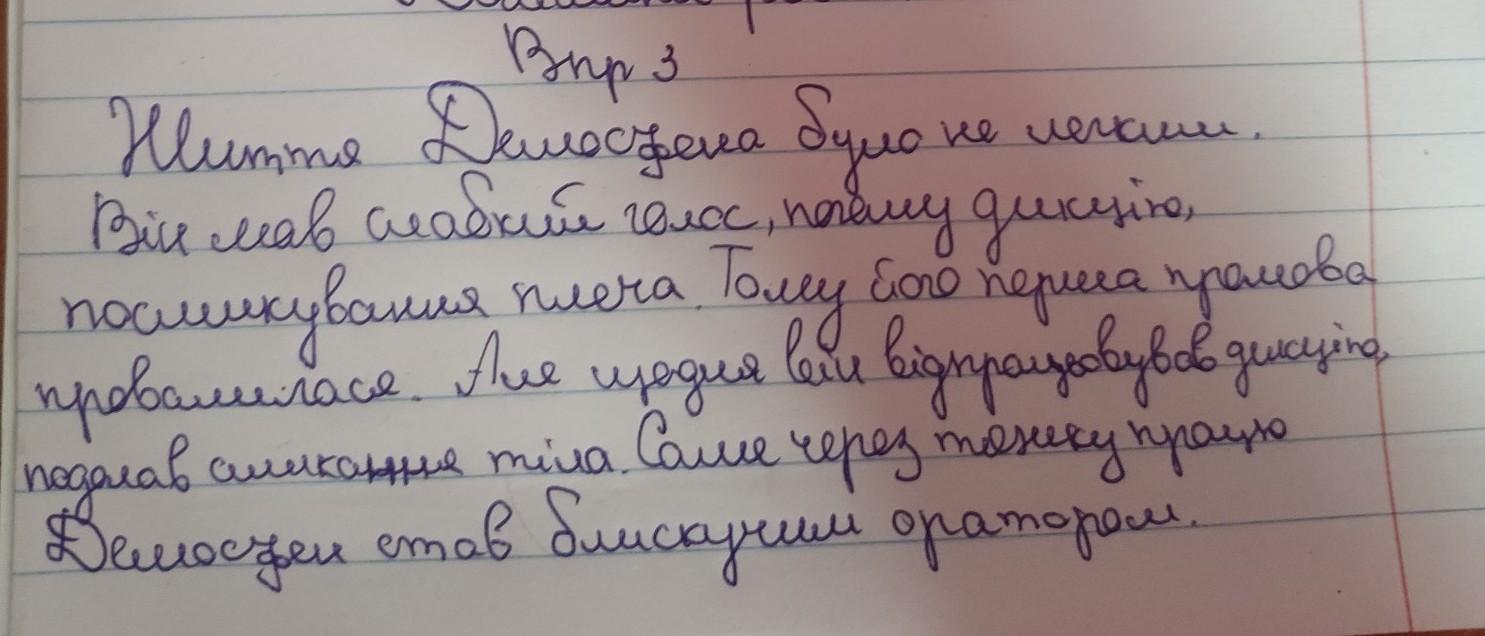 Впр 3
Життя Демосфена було не легким.
Він мав слабкий голос, погану дикцію,
посмикування плеча. Тому його перша промова
провалилася. Але щодня він відпрацьовував дикцію,
подолав смикання тіла. Саме через тяжку працю
Демосфен став блискучим оратором.